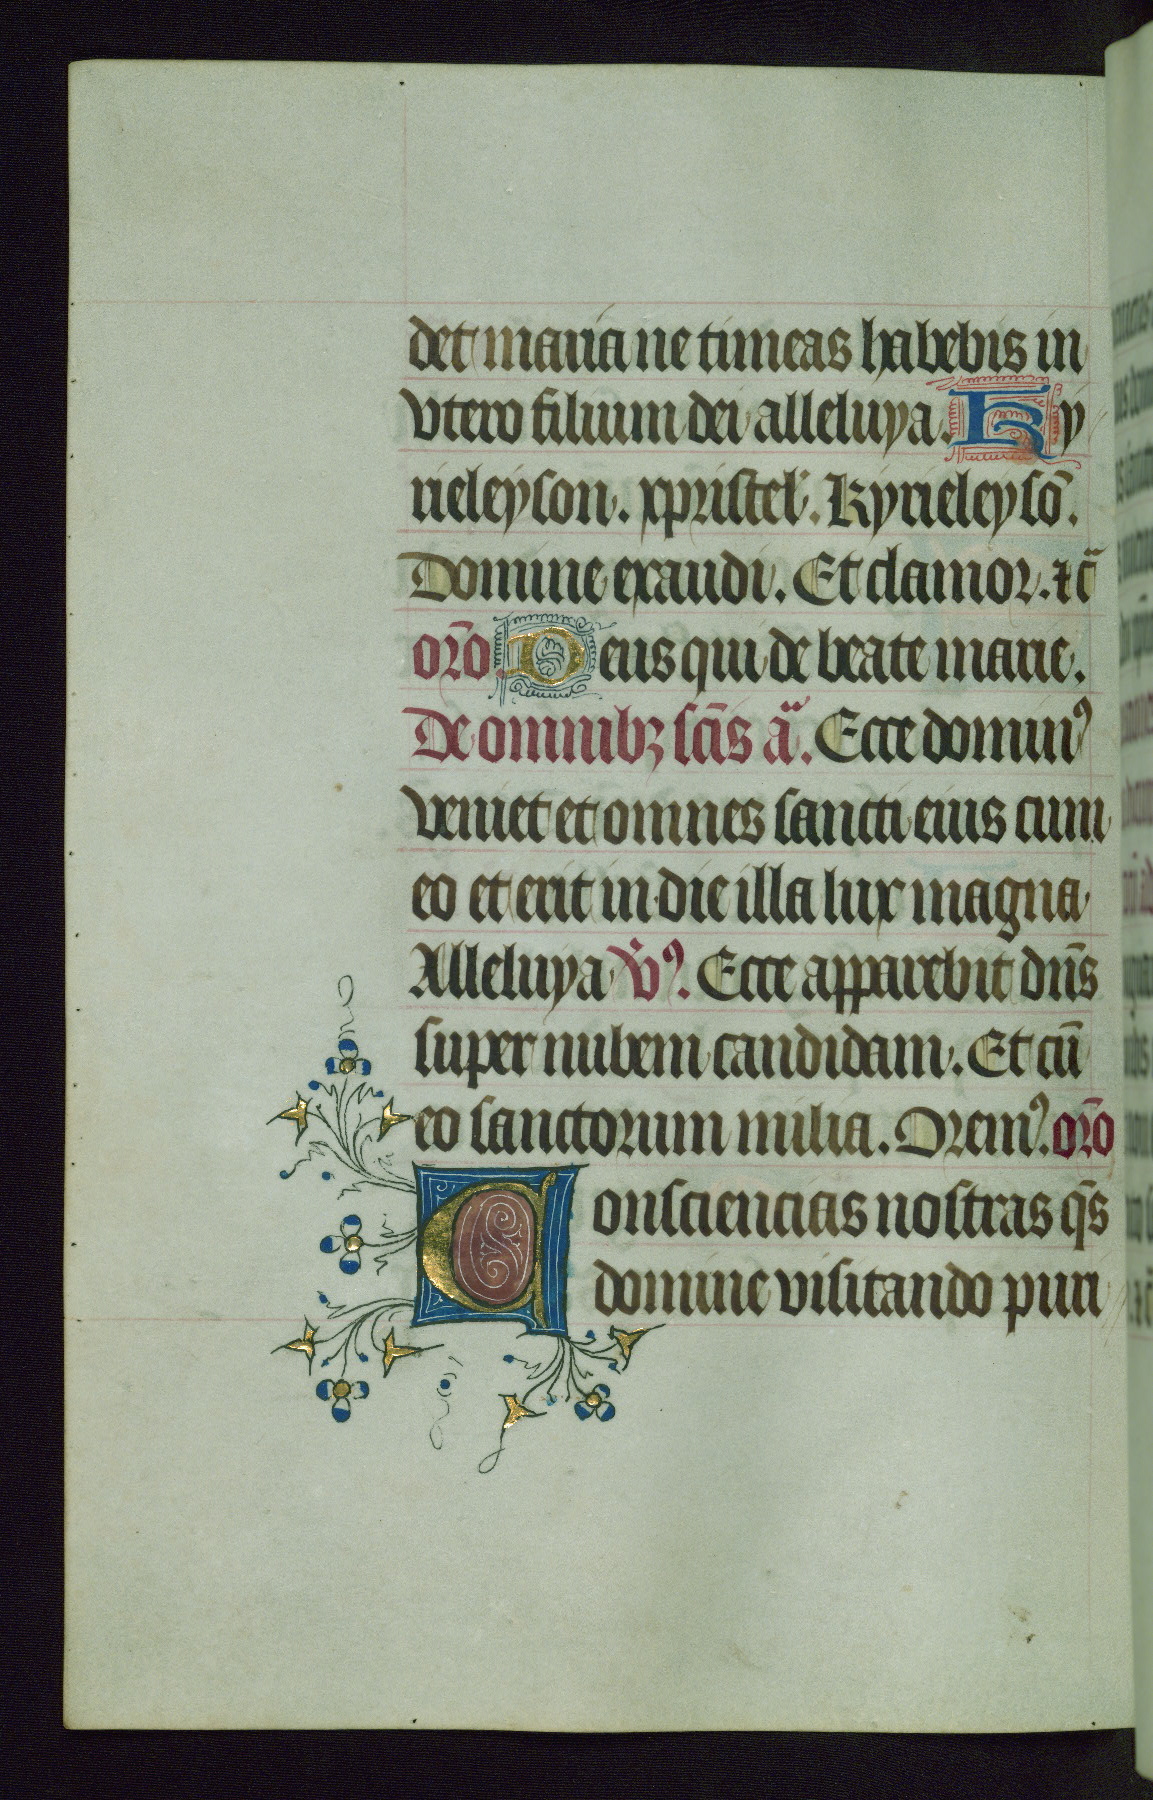 det maria ne timeas habebis in
vtero filium dei alleluya. Ky
rieleyson. xpristel'. Kyrieleysō.
Domine exaudi. Et clamor. ⁊c̄
or̄o. Deus qui de beate marie.
De omnibꝫ sc̄is a͞. Ecce dominꝰ
veniet et omnes sancti eius cum
eo et erit in die illa lux magna
Alleluya v̄ꝰ. Ecce apparebit dn̄s
super nubem candidam. Et cū
eo sanctorum milia. Oremꝰ. or̄o
Consciencias nostras q̄s
domine visitando puri